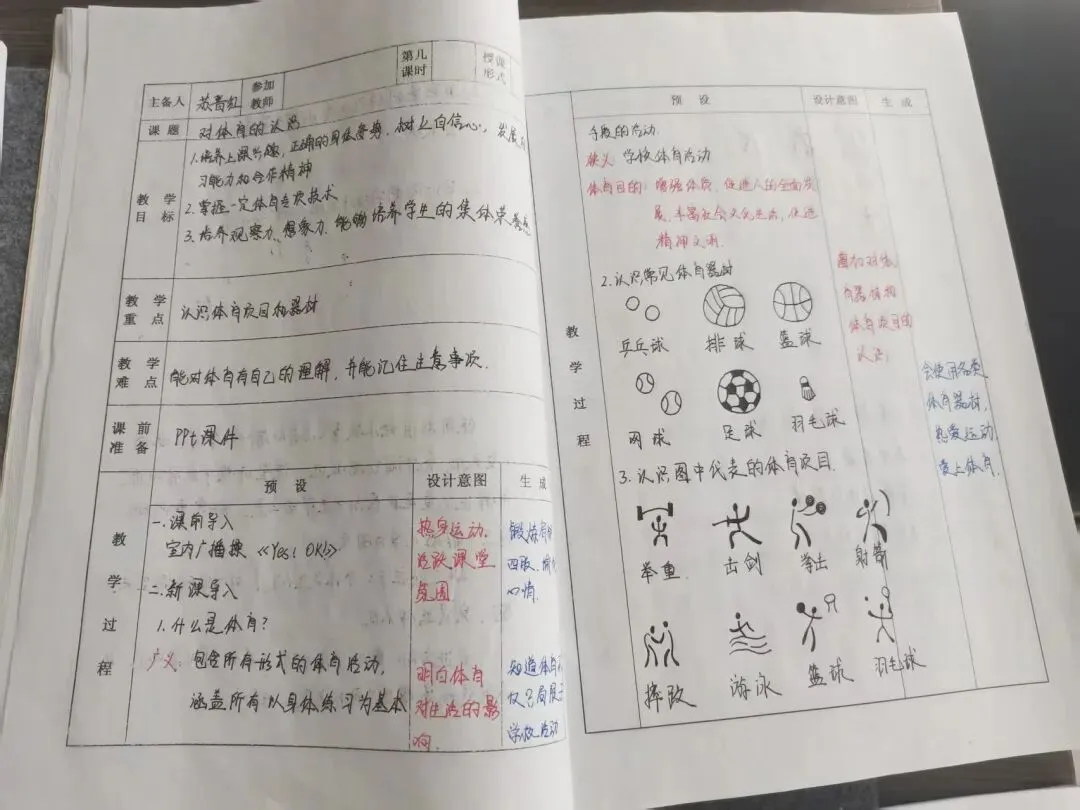 主备人 苏晋红 参加教师 第几课时 授课形式
课题 对体育的认识
教学目标
1.培养上课兴趣,正确的身体姿势,树立自信心,发展
习能力和合作精神
2.掌握一定体育专项技术
3.培养观察力、想象力,能够培养学生的集体荣誉感
教学重点 认识体育项目和器材
教学难点 能对体育有自己的理解,并能记住注意事项.
课前准备 PPt课件
教学过程
预设 设计意图 生成
一.课前导入
室内广播操《Yes! OK!》
二.新课导入
1.什么是体育?
广义:包含所有形式的体育活动,
涵盖所有以身体练习为基本
热身运动.
活跃课堂
氛围
明白体育
对生活的影
响.
锻炼身体
四肢,
心情.
知道体育不
仅只局限于
学校活动
教学过程
预设 设计意图 生成
手段的活动.
狭义:学校体育活动
体育目的:增强体质、促进人的全面发
展、丰富社会文化生活、促进
精神文明.
2.认识常见体育器材
乒乓球 排球 篮球
网球 足球 羽毛球
3.认识图中代表的体育项目.
举重 击剑 拳击 射箭
摔跤 游泳 篮球 羽毛球
增加对体
育器材和
体育项目的
认识.
会使用各类
体育器材,
热爱运动
爱上体育.